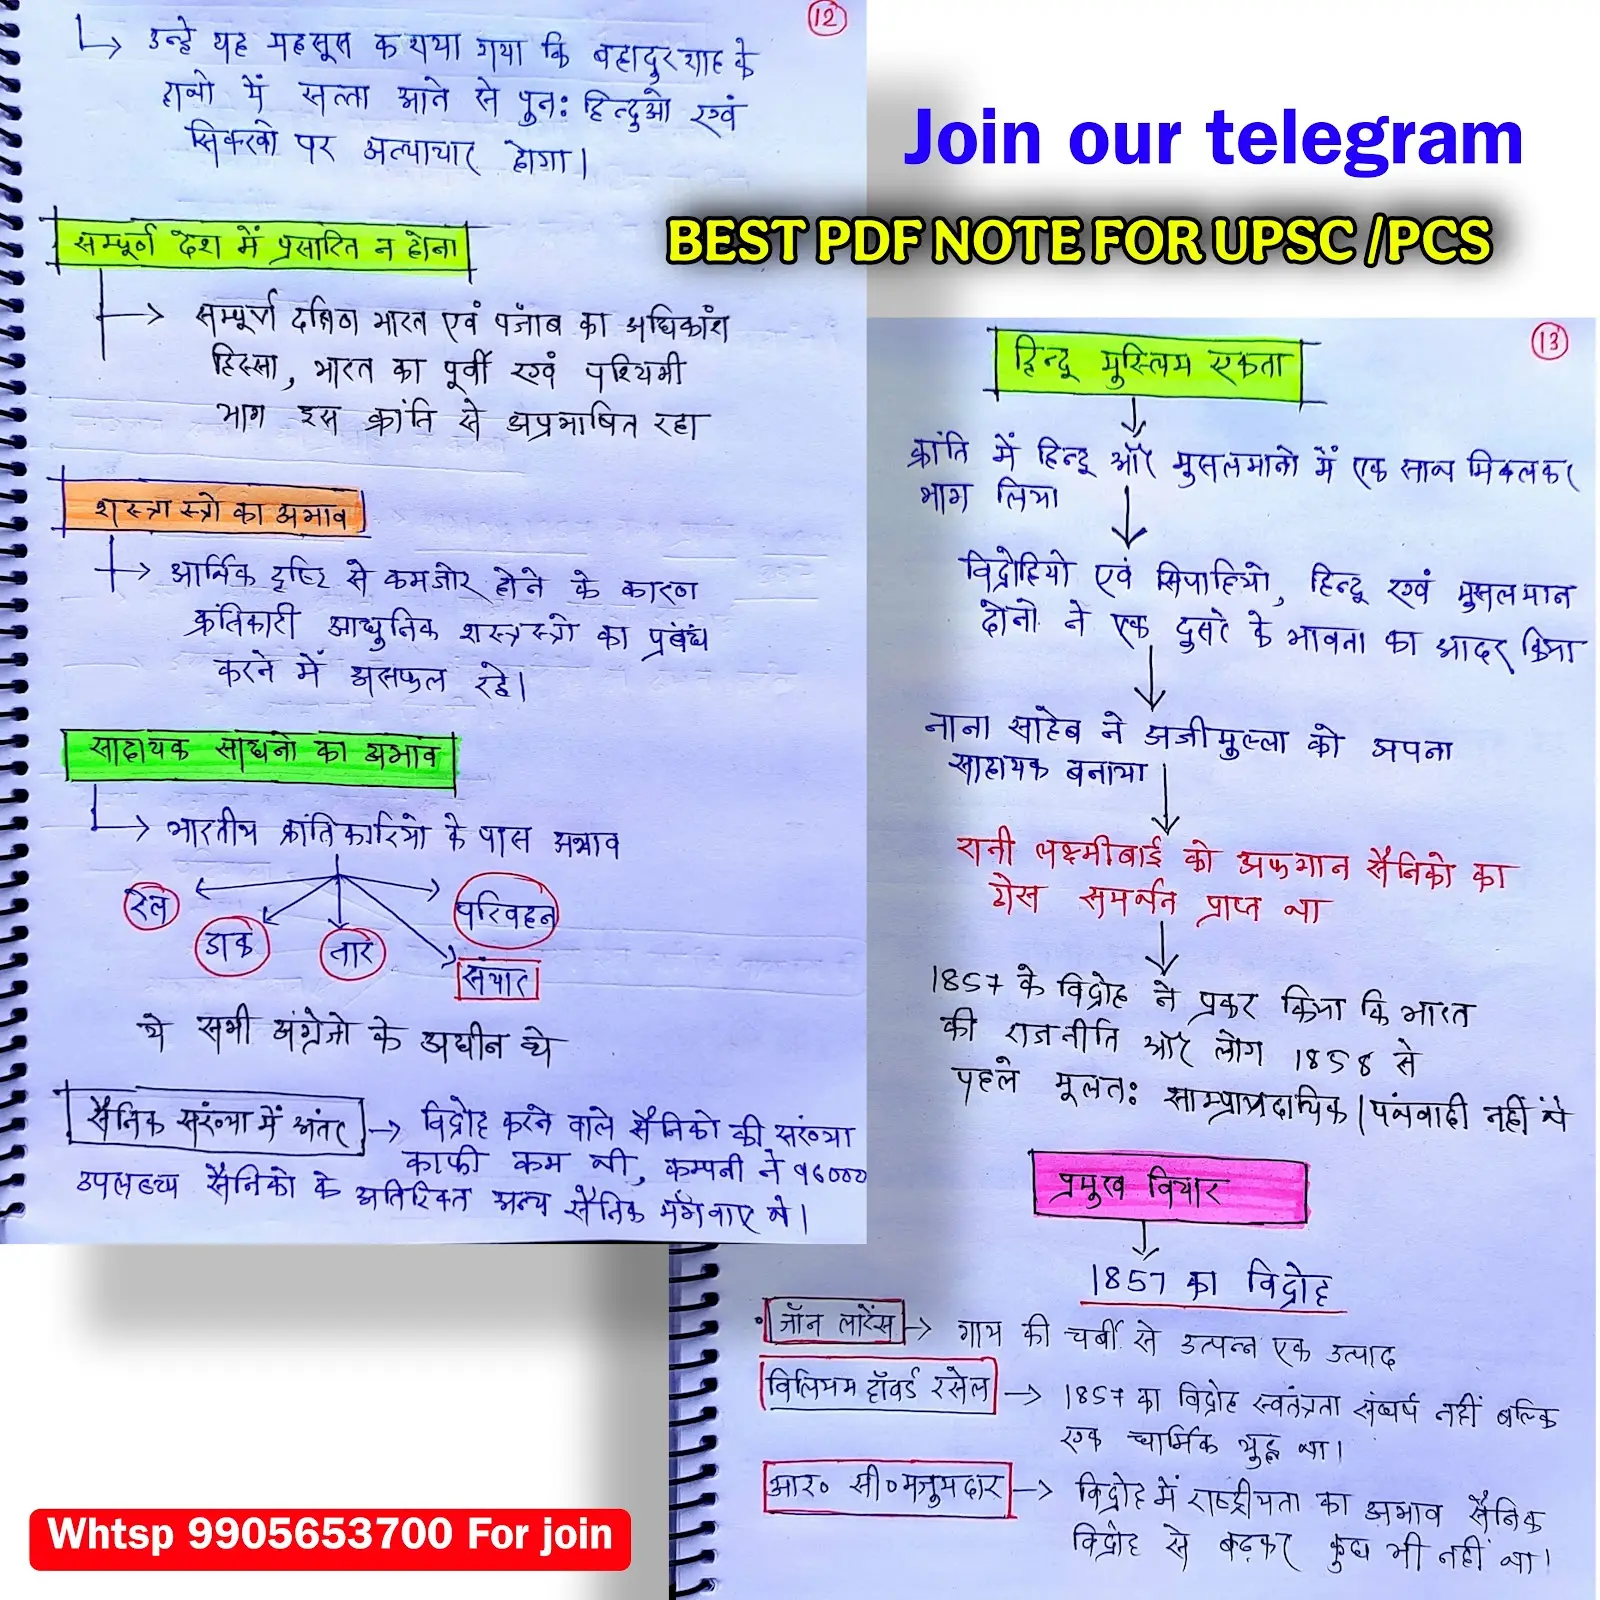 12
उन्हे यह महसूस कराया गया कि बहादुर शाह के
हाथो में सत्ता आने से पुनः हिन्दुओ एवं
सिक्खो पर अत्याचार होगा।
सम्पूर्ण देश में प्रसारित न होना
सम्पूर्ण दक्षिण भारत एवं पंजाब का अधिकांश
हिस्सा, भारत का पूर्वी एवं पश्चिमी
भाग इस क्रांति से अप्रभावित रहा
शस्त्रास्त्रो का अभाव
आर्थिक दृष्टि से कमजोर होने के कारण
क्रंतिकारी आधुनिक शस्त्रास्त्रो का प्रबंध
करने में असफल रहे।
साहायक साधनो का अभाव
भारतीय क्रांतिकारियो के पास अभाव
रेल
डाक
तार
परिवहन
संचार
ये सभी अंग्रेजो के अधीन थे
सैनिक संख्या में अंतर
विद्रोह करने वाले सैनिको की संख्या
काफी कम थी, कम्पनी ने 96000
उपलब्ध सैनिको के अतिरिक्त अन्य सैनिक मंगवाए थे।
Join our telegram
BEST PDF NOTE FOR UPSC /PCS
13
हिन्दू मुस्लिम एकता
क्रांति में हिन्दू और मुसलमानो में एक साथ मिलकर
भाग लिया
विद्रोहियो एवं सिपाहियो, हिन्दू एवं मुसलमान
दोनो ने एक दुसरे के भावना का आदर किया
नाना साहेब ने अजीमुल्ला को अपना
साहायक बनाया
रानी लक्ष्मीबाई को अफगान सैनिको का
ठोस समर्थन प्राप्त था
1857 के विद्रोह ने प्रकट किया कि भारत
की राजनीति और लोग 1858 से
पहले मूलतः साम्प्रायदायिक | पंथवादी नहीं थे
प्रमुख विचार
1857 का विद्रोह
जॉन लारेंस
गाय की चर्बी से उत्पन्न एक उत्पाद
विलियम हॉवर्ड रसेल
1857 का विद्रोह स्वतंत्रता संघर्ष नहीं बल्कि
एक धार्मिक युद्ध था।
आर० सी० मजुमदार
विद्रोह में राष्ट्रीयता का अभाव सैनिक
विद्रोह से बढ़कर कुछ भी नहीं था।
Whtsp 9905653700 For join